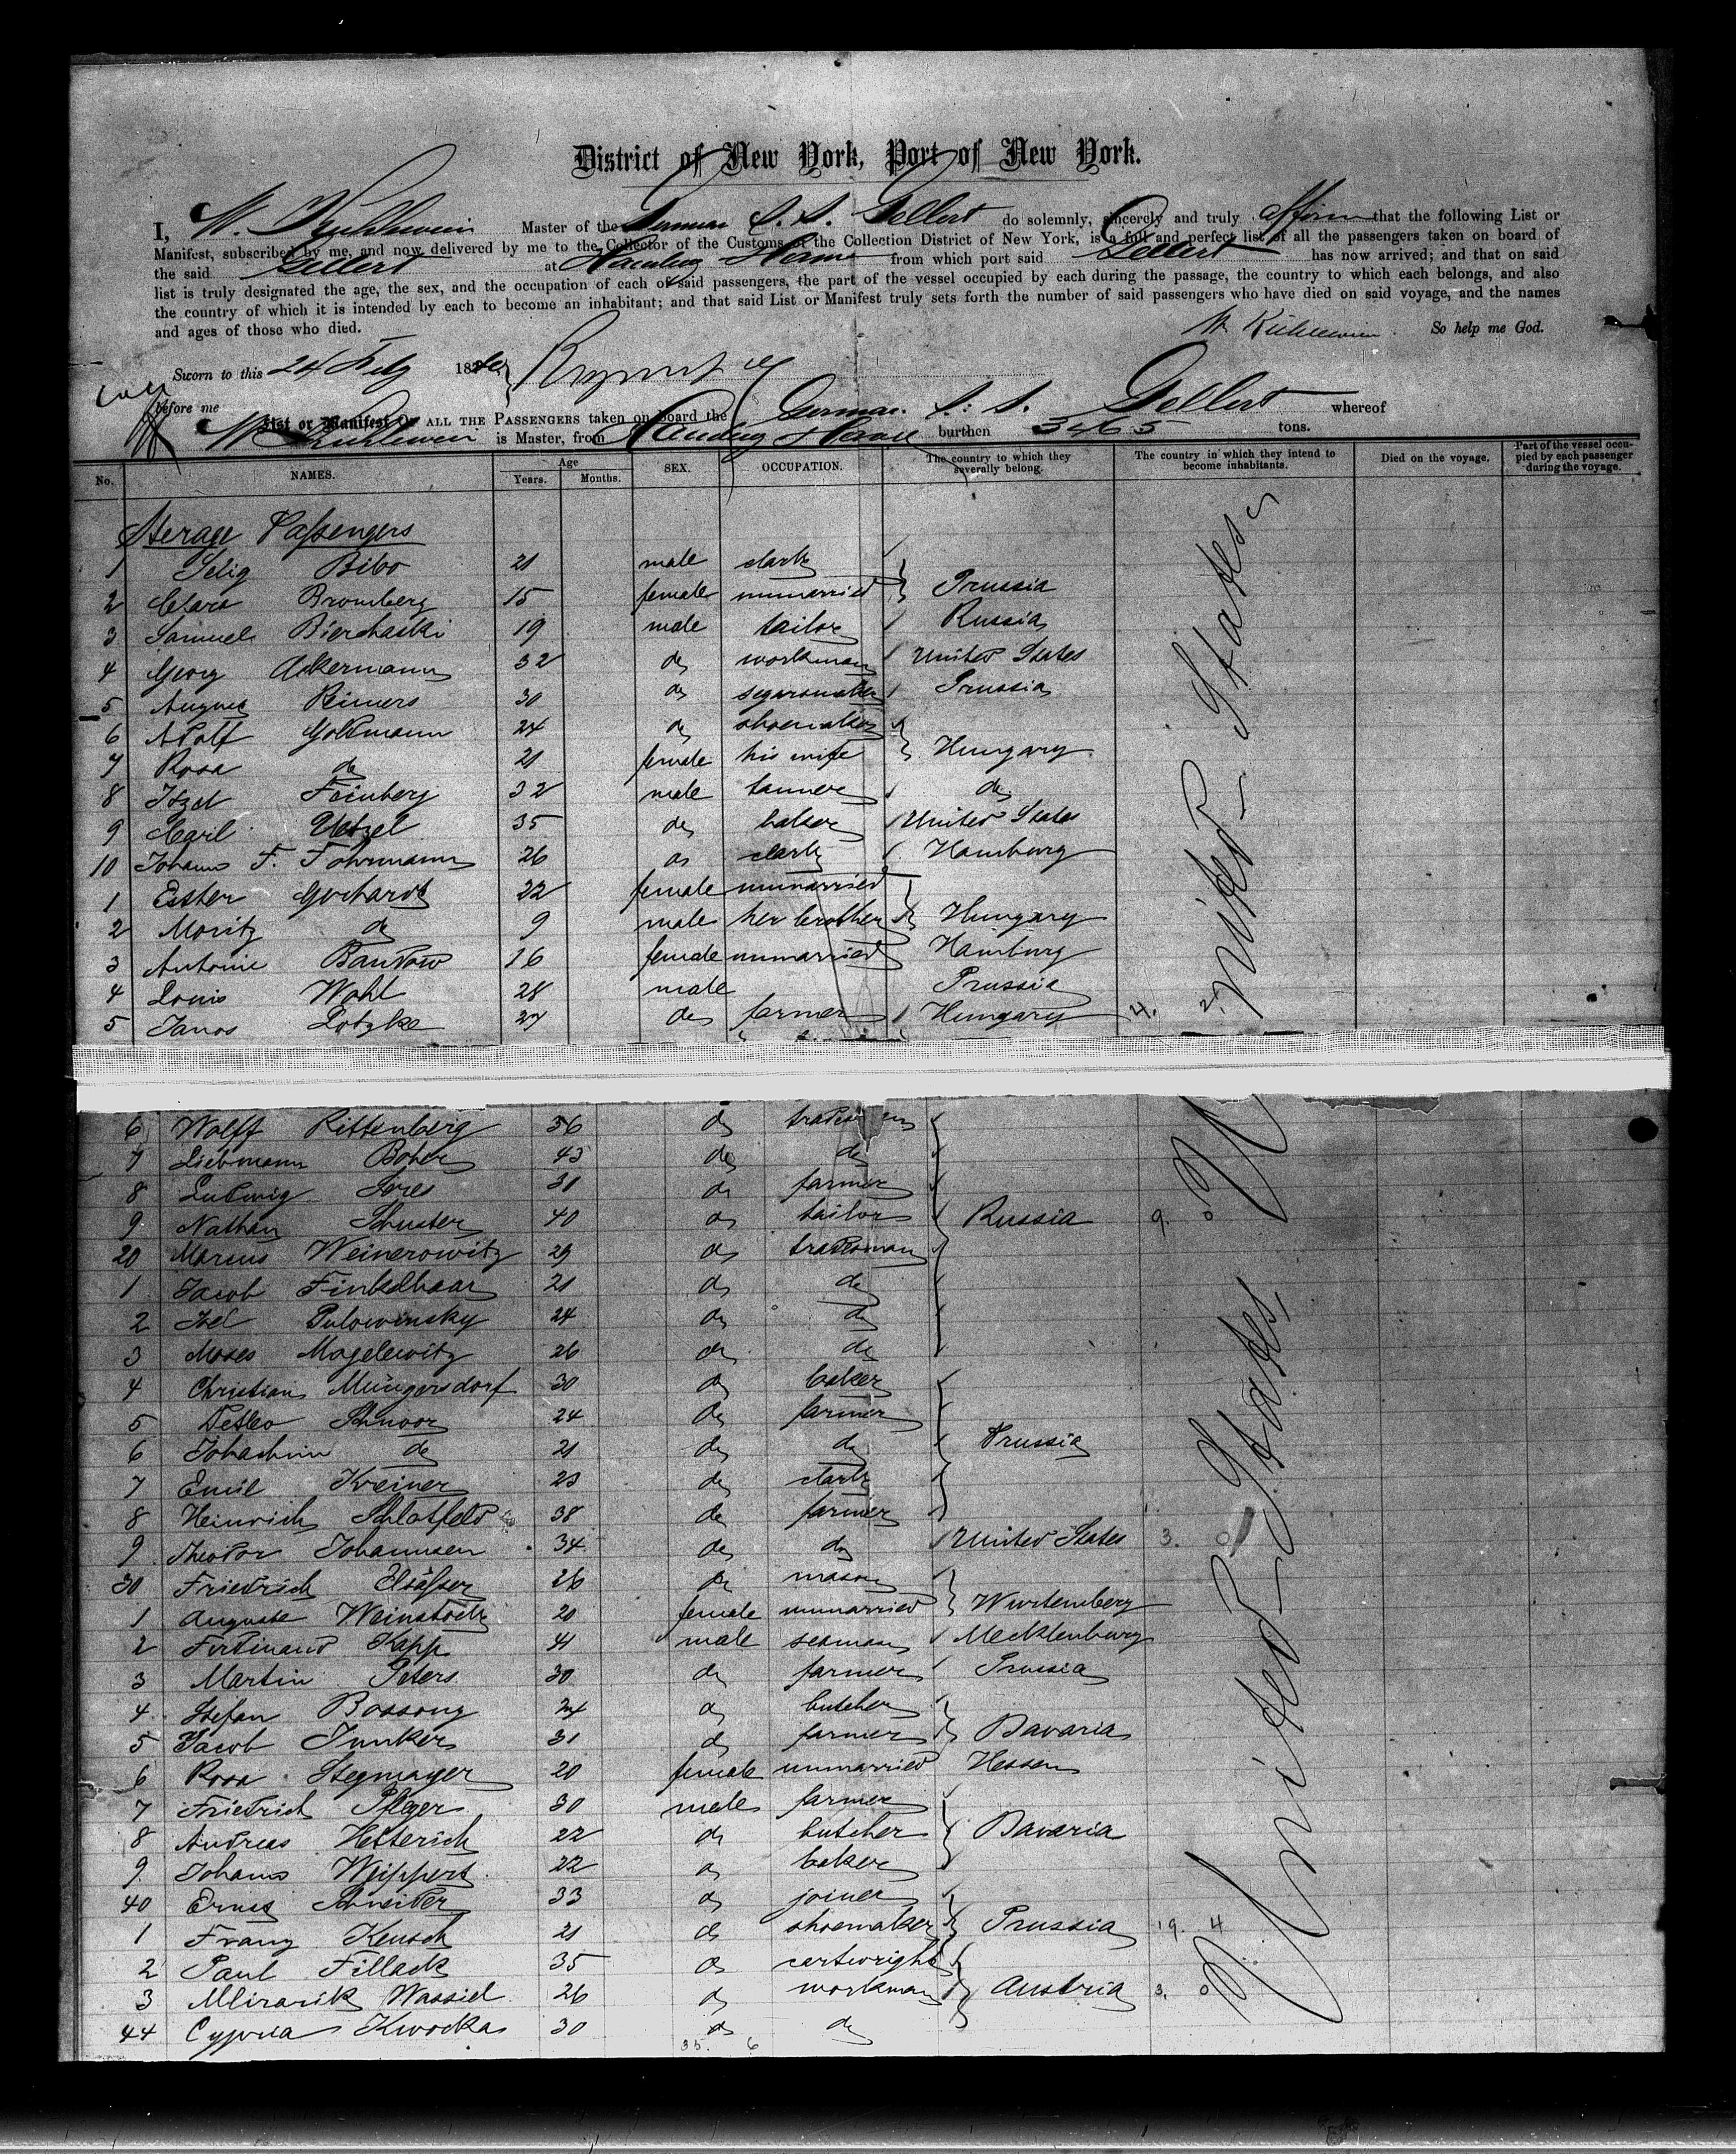 District of New York, Port of New York.
I, W. Kuhlewein Master of the German S. S. Gellert do solemnly, sincerely and truly affirm that the following List or
Manifest, subscribed by me, and now delivered by me to the Collector of the Customs of the Collection District of New York, is a full and perfect list of all the passengers taken on board of
the said Gellert at Hamburg Havre from which port said Gellert has now arrived; and that on said
list is truly designated the age, the sex, and the occupation of each of said passengers, the part of the vessel occupied by each during the passage, the country to which each belongs, and also
the country of which it is intended by each to become an inhabitant; and that said List or Manifest truly sets forth the number of said passengers who have died on said voyage, and the names
and ages of those who died.
W. Kuhlewein So help me God.
Sworn to this 24 Feby 18
before me
List or Manifest OF ALL THE PASSENGERS taken on board the German S. S. Gellert whereof
W Kuhlewein is Master, from Hamburg Havre burthen 3465 tons.
No. NAMES. Age Years. Months. SEX. OCCUPATION. The country to which they severally belong. The country in which they intend to become inhabitants. Died on the voyage. Part of the vessel occupied by each passenger during the voyage.
Sterage Passengers
1 Selig Bibo 21 male clark
2 Clara Bromberg 15 female unmarried Prussia
3 Samuel Bierchaski 19 male tailor Russia
4 Georg Ackermann 32 do workman United States
5 August Reimers 30 do segarsmaker Prussia
6 Adolf Goldmann 24 do shoemaker
7 Rosa do 21 female his wife Hungary
8 Itzel Feinberg 32 male tanner do
9 Carl Uetzel 35 do baker United States
10 Johann F. Fohrmann 26 do clark Hamburg
1 Ester Gerhardt 22 female unmarried
2 Moritz do 9 male her brother Hungary
3 Antonie Bandow 16 female unmarried Hamburg
4 Louis Wohl 28 male Prussia
5 Janos Lotzke 27 do farmer Hungary 4. 2.
United States
6 Wolff Rittenberg 36 do tradesman
7 Liebmann Bober 43 do do
8 Ludwig Sores 31 do farmer
9 Nathan Schuster 40 do tailor Russia 9. 0
20 Marcus Weinerowitz 29 do tradesman
1 Jacob Finkelhaar 21 do do
2 Isel Pulowinsky 24 do do
3 Moses Magelewitz 26 do do
4 Christian Müngersdorf 30 do baker
5 Detlev Schnoor 24 do farmer
6 Johachim do 21 do do Prussia
7 Emil Kreiner 23 do clark
8 Heinrich Schlatfeld 38 do farmer
9 Theodor Johannsen 34 do do United States 3. 0
30 Friedrich Elsässer 26 do mason
1 Auguste Weinstock 20 female unmarried Wurtemberg
2 Ferdinand Kapp 41 male seaman Mecklenburg
3 Martin Peters 30 do farmer Prussia
4 Stefan Bossong 24 do butcher
5 Jacob Junker 31 do farmer Bavaria
6 Rosa Stegmayer 20 female unmarried Hessen
7 Friedrich Pfleger 30 male farmer
8 Andreas Hetterich 22 do butcher Bavaria
9 Johann Wippert 22 do baker
40 Ernst Schneider 33 do joiner
1 Franz Keusch 21 do shoemaker Prussia 19. 4
2 Paul Fillack 35 do cartwright
3 Mlirarik Wassiel 26 do workman Austria 3. 0
44 Cypria Kwocka 30 do do
35. 6
United States